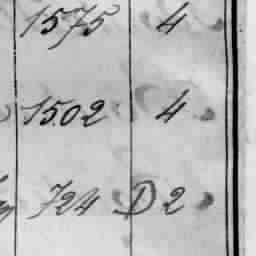 1575 4
1502 4
724 D2